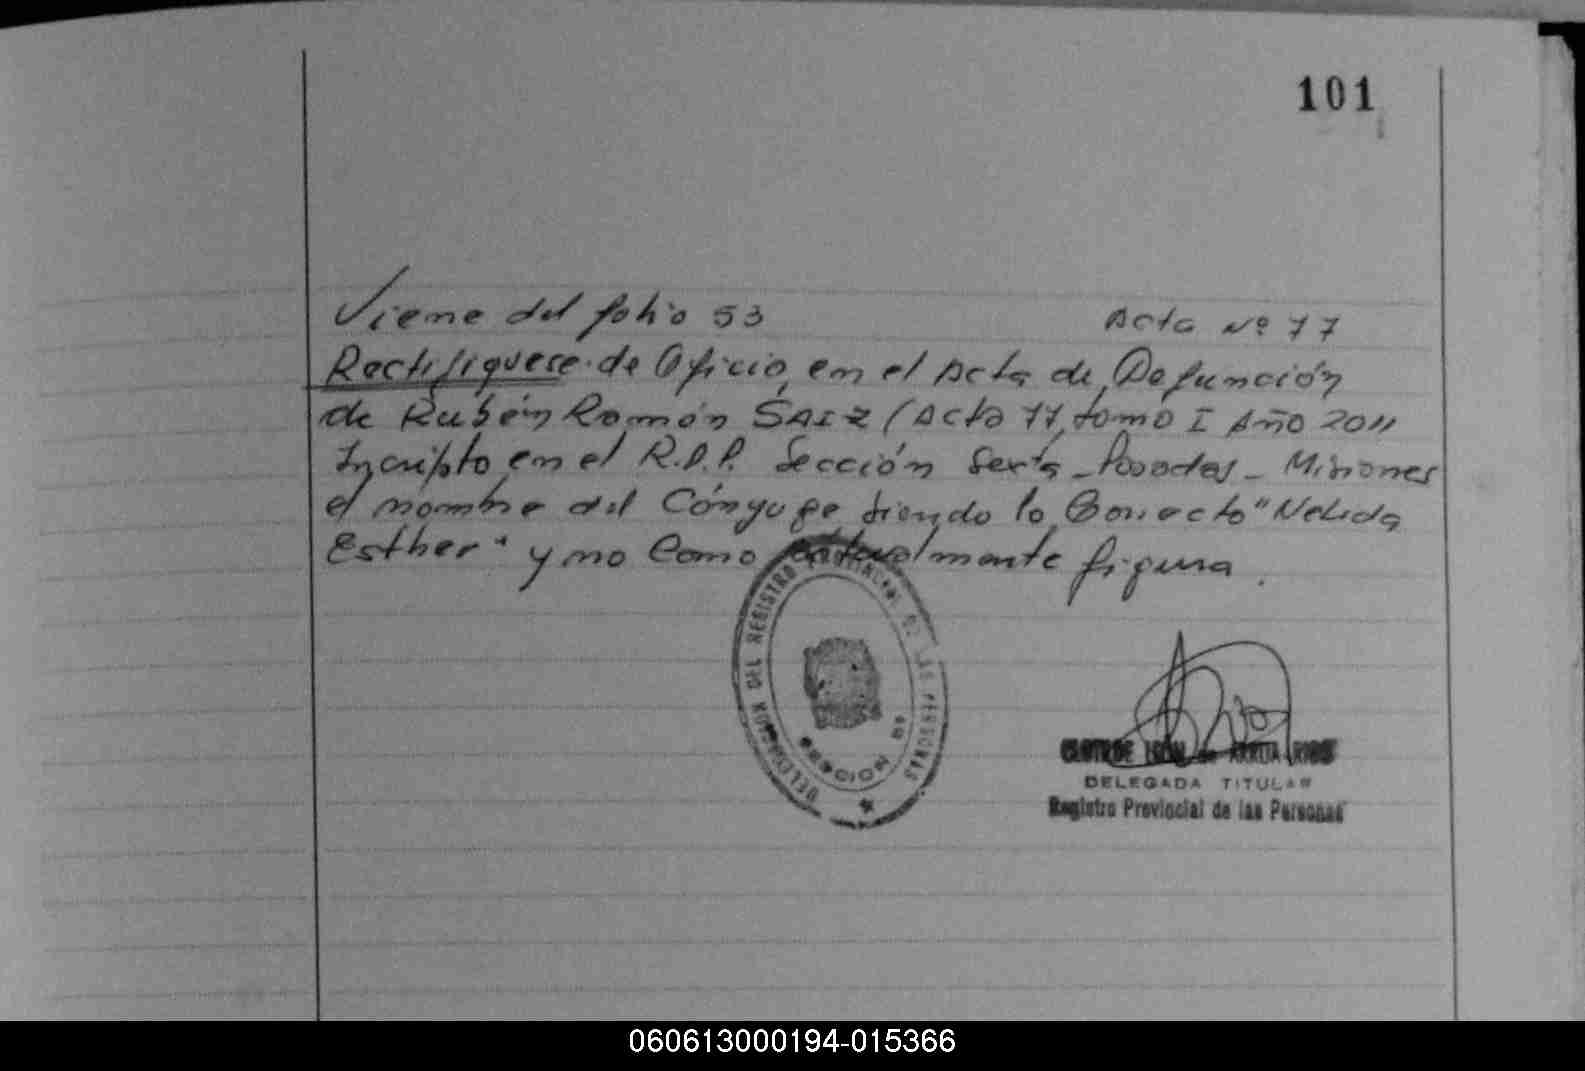 101
Viene del folio 53 Acta Nº 77
Rectifiquese de Oficio, en el Acta de Defunción
de Rubén Ramón SAIZ (Acta 77, tomo I Año 2011
Incripto en el R.P.P. Sección Sexta - Posadas - Misiones
el nombre del Cónyuge, siendo lo Correcto "Nelida
Esther" y no Como actualmente figura.
DELEGACION DEL REGISTRO PROVINCIAL DE LAS PERSONAS
DELEGADA TITULAR
Registro Provincial de las Personas
060613000194-015366